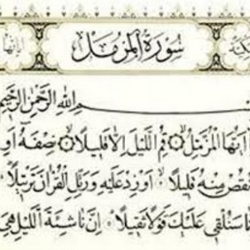 سُورَةُ الْمُزَّمِّلِ
اللَّهِ الرَّحْمَٰنِ الرَّحِيمِ
أَيُّهَا الْمُزَّمِّلُ ۝ قُمِ اللَّيْلَ إِلَّا قَلِيلًا ۝ نِصْفَهُ أَوِ
مِنْهُ قَلِيلًا ۝ أَوْ زِدْ عَلَيْهِ وَرَتِّلِ الْقُرْآنَ تَرْتِيلًا ۝
سَنُلْقِي عَلَيْكَ قَوْلًا ثَقِيلًا ۝ إِنَّ نَاشِئَةَ اللَّيْلِ هِيَ